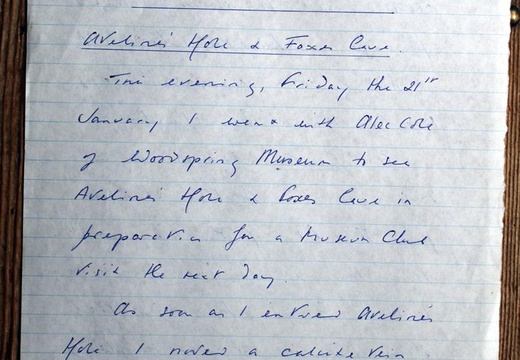 Aveline's Hole & Foxes Cave.
This evening, Friday the 21st
January I went with Alec Cole
of Woodspring Museum to see
Aveline's Hole & Foxes Cave in
preparation for a Museum Club
visit the next day.
As soon as I entered Aveline's
Hole I noted a calcite vein